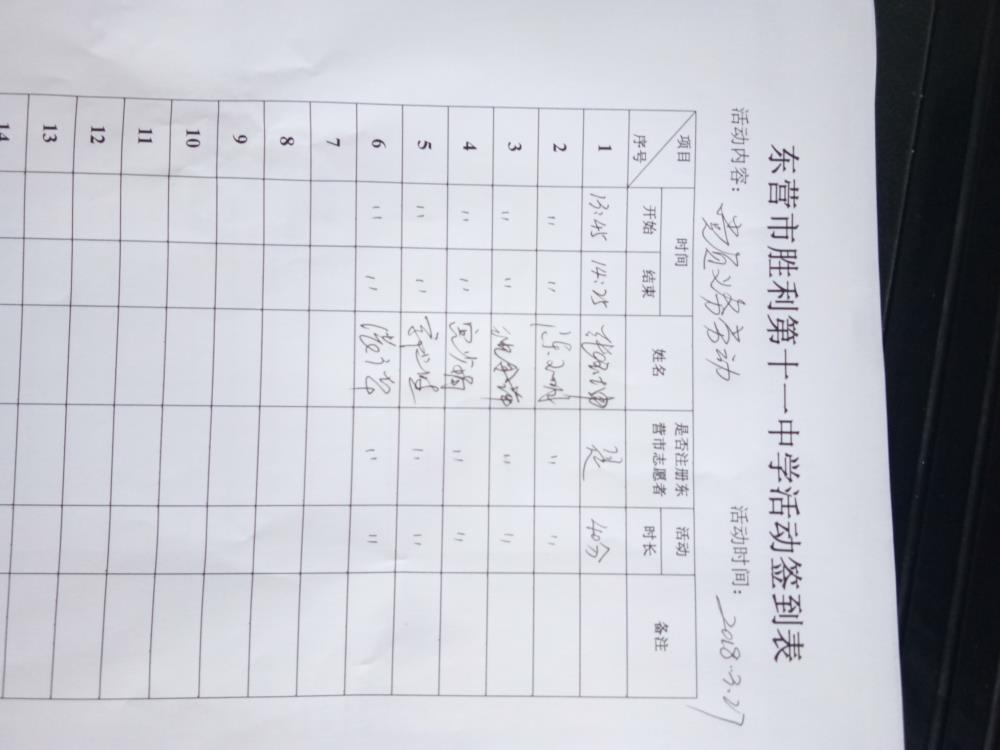 东营市胜利第十一中学活动签到表
活动内容：党员义务劳动 活动时间：2018.3.27
项目 序号 时间 姓名 是否注册东营市志愿者 活动时长 备注
开始 结束
1 13:45 14:25 是 40分
2 〃 〃 〃 〃
3 〃 〃 〃 〃
4 〃 〃 〃 〃
5 〃 〃 〃 〃
6 〃 〃 〃 〃
7
8
9
10
11
12
13
14